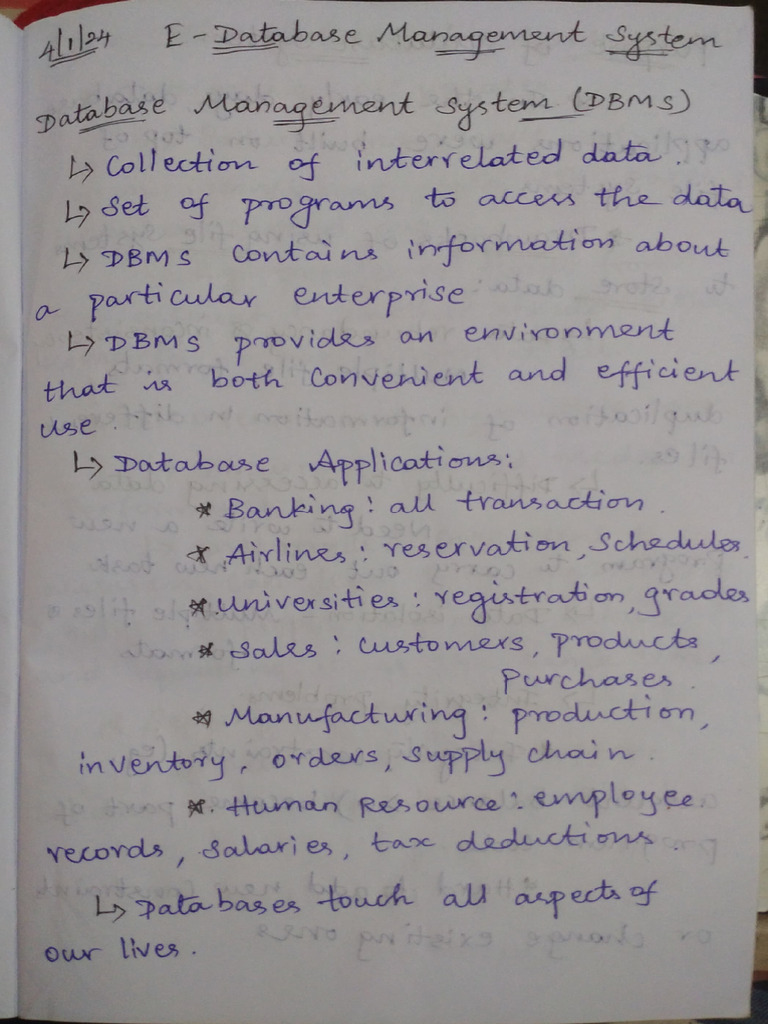 4/1/24 E-Database Management System
Database Management System (DBMS)
↳ Collection of interrelated data.
↳ Set of programs to access the data
↳ DBMS contains information about
a particular enterprise
↳ DBMS provides an environment
that is both convenient and efficient
use.
↳ Database Applications:
* Banking: all transaction.
* Airlines: reservation, schedules.
* Universities: registration, grades
* Sales: customers, products,
Purchases.
* Manufacturing: production,
inventory, orders, supply chain.
* Human Resource: employee
records, salaries, tax deductions.
↳ Databases touch all aspects of
our lives.